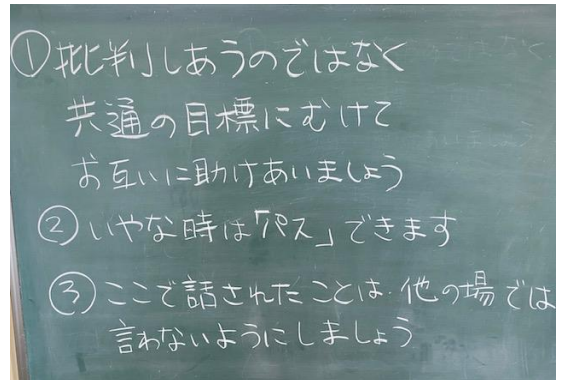 ① 批判しあうのではなく
共通の目標にむけて
お互いに助けあいましょう
② いやな時は「パス」できます
③ ここで話されたことは、他の場では
言わないようにしましょう